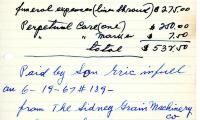 funeral expense (Less Shroud) $275.00
Perpetual Care (one) $ 250.00
" Marker $ 7.50
total $ 537.50
Paid by Son Eric in full
on 6-19-67 # 139-
from The Sidney Grain Machinery
Co